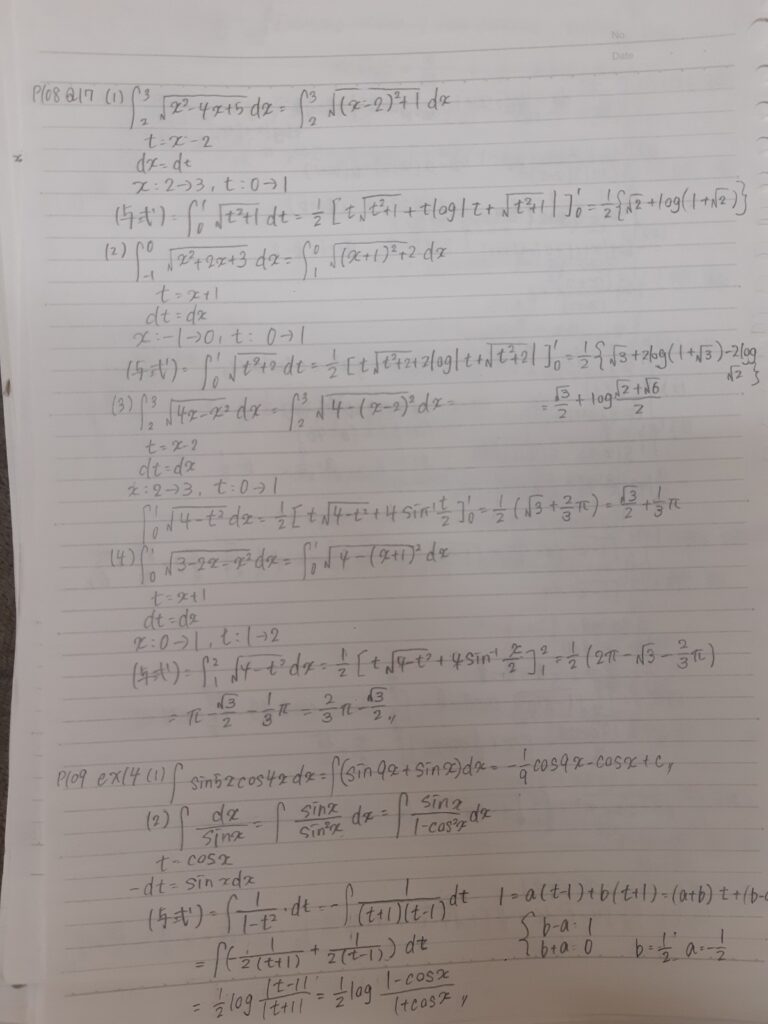 No.
Date
P108 Q217 (1) ∫₂³ √(x²-4x+5) dx = ∫₂³ √((x-2)²+1) dx
t = x-2
dx = dt
x : 2→3, t : 0→1
(与式) = ∫₀¹ √(t²+1) dt = 1/2 [t√(t²+1) + 1log|t+√(t²+1)|]₀¹ = 1/2{√2+log(1+√2)}
(2) ∫₋₁⁰ √(x²+2x+3) dx = ∫₁⁰ √((x+1)²+2) dx
t = x+1
dt = dx
x : -1→0, t : 0→1
(与式) = ∫₀¹ √(t²+2) dt = 1/2 [t√(t²+2)+2log|t+√(t²+2)|]₀¹ = 1/2{√3+2log(1+√3)-2log√2}
= √3/2 + log (√2+√6)/2
(3) ∫₂³ √(4x-x²) dx = ∫₂³ √(4-(x-2)²) dx =
t = x-2
dt = dx
x : 2→3, t : 0→1
∫₀¹ √(4-t²) dx = 1/2 [t√(4-t²) + 4 sin⁻¹ t/2]₀¹ = 1/2 (√3+2/3π) = √3/2 + 1/3π
(4) ∫₀¹ √(3-2x-x²) dx = ∫₀¹ √(4-(x+1)²) dx
t = x+1
dt = dx
x : 0→1, t : 1→2
(与式) = ∫₁² √(4-t²) dx = 1/2 [t√(4-t²) + 4 sin⁻¹ x/2]₁² = 1/2 (2π-√3-2/3π)
= π - √3/2 - 1/3π = 2/3π - √3/2,,
P109 ex14 (1) ∫ sin5x cos4x dx = ∫(sin9x + sinx)dx = -1/9 cos9x - cosx + c,,
(2) ∫ dx/sinx = ∫ sinx/sin²x dx = ∫ sinx/(1-cos²x) dx
t = cosx
-dt = sinxdx
(与式) = ∫ 1/(1-t²)・dt = -∫ 1/((t+1)(t-1)) dt 1 = a(t-1)+b(t+1) = (a+b)t+(b-
= ∫(-1/2(t+1) + 1/2(t-1)) dt { b-a = 1 b+a = 0 b = 1/2, a = -1/2
= 1/2 log |t-1|/|t+1| = 1/2 log (1-cosx)/(1+cosx),,